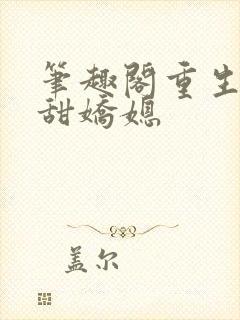 筆趣閣重生
甜嬌媳
盖尔